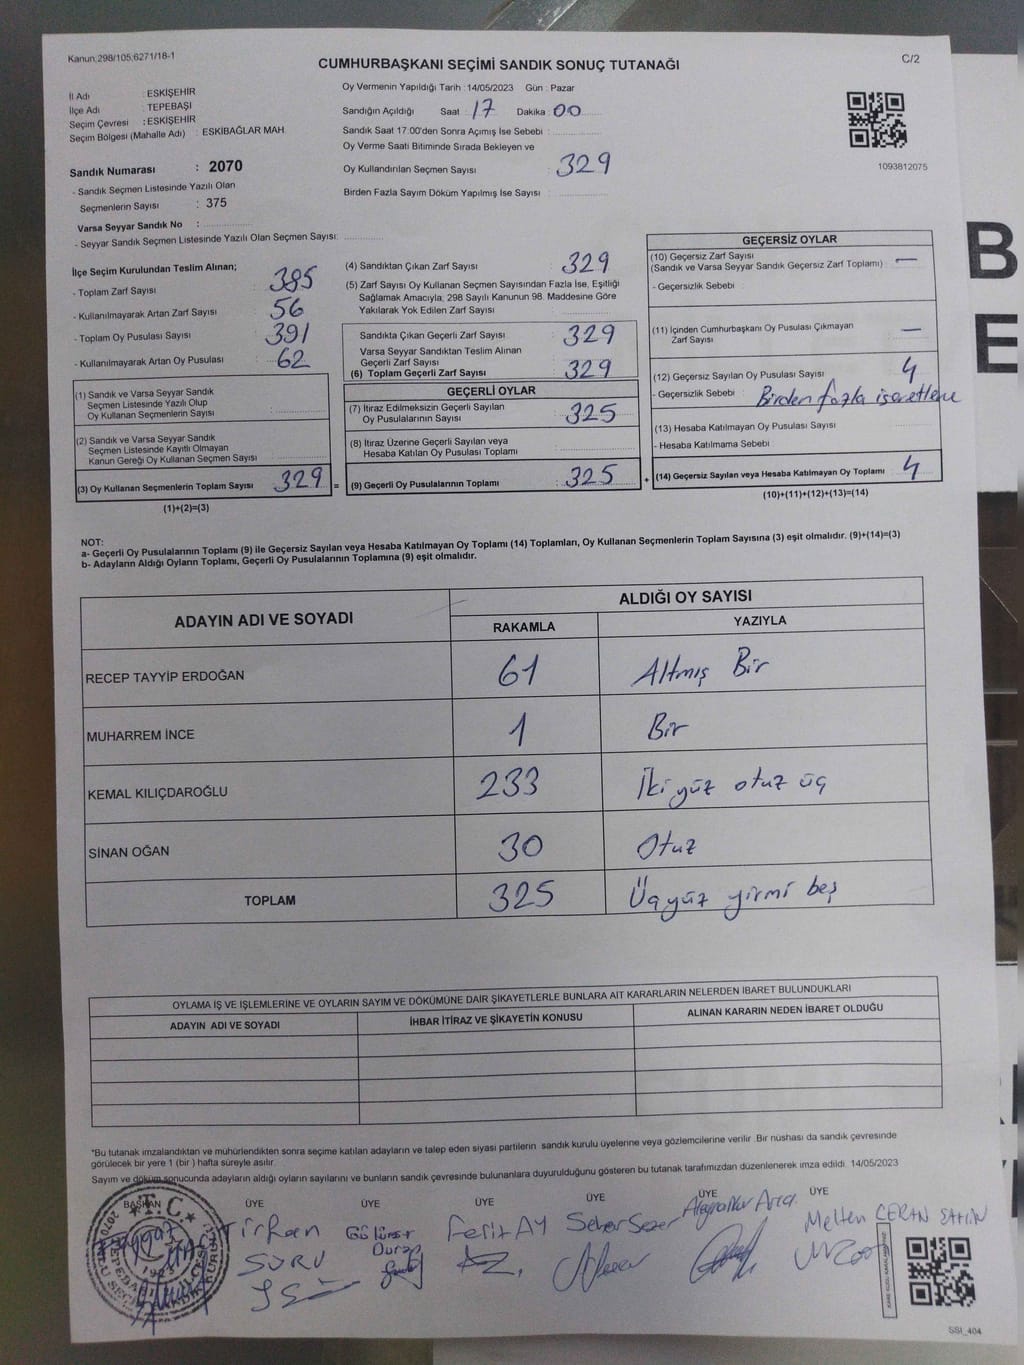 Kanun;298/105;6271/18-1
CUMHURBAŞKANI SEÇİMİ SANDIK SONUÇ TUTANAĞI
C/2
İl Adı : ESKİŞEHİR
İlçe Adı : TEPEBAŞI
Seçim Çevresi : ESKİŞEHİR
Seçim Bölgesi (Mahalle Adı) : ESKİBAĞLAR MAH.
Sandık Numarası : 2070
- Sandık Seçmen Listesinde Yazılı Olan
Seçmenlerin Sayısı : 375
Varsa Seyyar Sandık No :
- Seyyar Sandık Seçmen Listesinde Yazılı Olan Seçmen Sayısı:
Oy Vermenin Yapıldığı Tarih : 14/05/2023 Gün : Pazar
Sandığın Açıldığı Saat : 17 Dakika : 00
Sandık Saat 17:00'den Sonra Açımış İse Sebebi :
Oy Verme Saati Bitiminde Sırada Bekleyen ve
Oy Kullandırılan Seçmen Sayısı : 329
Birden Fazla Sayım Döküm Yapılmış İse Sayısı :
1093812075
İlçe Seçim Kurulundan Teslim Alınan;
- Toplam Zarf Sayısı : 385
- Kullanılmayarak Artan Zarf Sayısı : 56
- Toplam Oy Pusulası Sayısı : 391
- Kullanılmayarak Artan Oy Pusulası : 62
(1) Sandık ve Varsa Seyyar Sandık
Seçmen Listesinde Yazılı Olup
Oy Kullanan Seçmenlerin Sayısı :
(2) Sandık ve Varsa Seyyar Sandık
Seçmen Listesinde Kayıtlı Olmayan
Kanun Gereği Oy Kullanan Seçmen Sayısı :
(3) Oy Kullanan Seçmenlerin Toplam Sayısı : 329 =
(1)+(2)=(3)
(4) Sandıktan Çıkan Zarf Sayısı : 329
(5) Zarf Sayısı Oy Kullanan Seçmen Sayısından Fazla İse, Eşitliği
Sağlamak Amacıyla; 298 Sayılı Kanunun 98. Maddesine Göre
Yakılarak Yok Edilen Zarf Sayısı :
Sandıkta Çıkan Geçerli Zarf Sayısı : 329
Varsa Seyyar Sandıktan Teslim Alınan
Geçerli Zarf Sayısı :
(6) Toplam Geçerli Zarf Sayısı : 329
GEÇERLİ OYLAR
(7) İtiraz Edilmeksizin Geçerli Sayılan
Oy Pusulalarının Sayısı : 325
(8) İtiraz Üzerine Geçerli Sayılan veya
Hesaba Katılan Oy Pusulası Toplamı :
(9) Geçerli Oy Pusulalarının Toplamı : 325 +
GEÇERSİZ OYLAR
(10) Geçersiz Zarf Sayısı : —
(Sandık ve Varsa Seyyar Sandık Geçersiz Zarf Toplamı)
- Geçersizlik Sebebi :
(11) İçinden Cumhurbaşkanı Oy Pusulası Çıkmayan
Zarf Sayısı : —
(12) Geçersiz Sayılan Oy Pusulası Sayısı : 4
- Geçersizlik Sebebi : Birden fazla işaretleme
(13) Hesaba Katılmayan Oy Pusulası Sayısı :
- Hesaba Katılmama Sebebi :
(14) Geçersiz Sayılan veya Hesaba Katılmayan Oy Toplamı : 4
(10)+(11)+(12)+(13)=(14)
NOT:
a- Geçerli Oy Pusulalarının Toplamı (9) ile Geçersiz Sayılan veya Hesaba Katılmayan Oy Toplamı (14) Toplamları, Oy Kullanan Seçmenlerin Toplam Sayısına (3) eşit olmalıdır. (9)+(14)=(3)
b- Adayların Aldığı Oyların Toplamı, Geçerli Oy Pusulalarının Toplamına (9) eşit olmalıdır.
ADAYIN ADI VE SOYADI ALDIĞI OY SAYISI
RAKAMLA YAZIYLA
RECEP TAYYİP ERDOĞAN 61 Altmış Bir
MUHARREM İNCE 1 Bir
KEMAL KILIÇDAROĞLU 233 İki yüz otuz üç
SİNAN OĞAN 30 Otuz
TOPLAM 325 Üçyüz yirmi beş
OYLAMA İŞ VE İŞLEMLERİNE VE OYLARIN SAYIM VE DÖKÜMÜNE DAİR ŞİKAYETLERLE BUNLARA AİT KARARLARIN NELERDEN İBARET BULUNDUKLARI
ADAYIN ADI VE SOYADI İHBAR İTİRAZ VE ŞİKAYETİN KONUSU ALINAN KARARIN NEDEN İBARET OLDUĞU
*Bu tutanak imzalandıktan ve mühürlendikten sonra seçime katılan adayların ve talep eden siyasi partilerin sandık kurulu üyelerine veya gözlemcilerine verilir .Bir nüshası da sandık çevresinde
görülecek bir yere 1 (bir ) hafta süreyle asılır.
Sayım ve döküm sonucunda adayların aldığı oyların sayılarını ve bunların sandık çevresinde bulunanlara duyurulduğunu gösteren bu tutanak tarafımızdan düzenlenerek imza edildi. 14/05/2023
BAŞKAN ÜYE ÜYE ÜYE ÜYE ÜYE ÜYE
T.C.
İrfan
SURU
Ferit AY
Seher Sezer
Meltem CERAN ŞAHİN
SSI_404
B
E